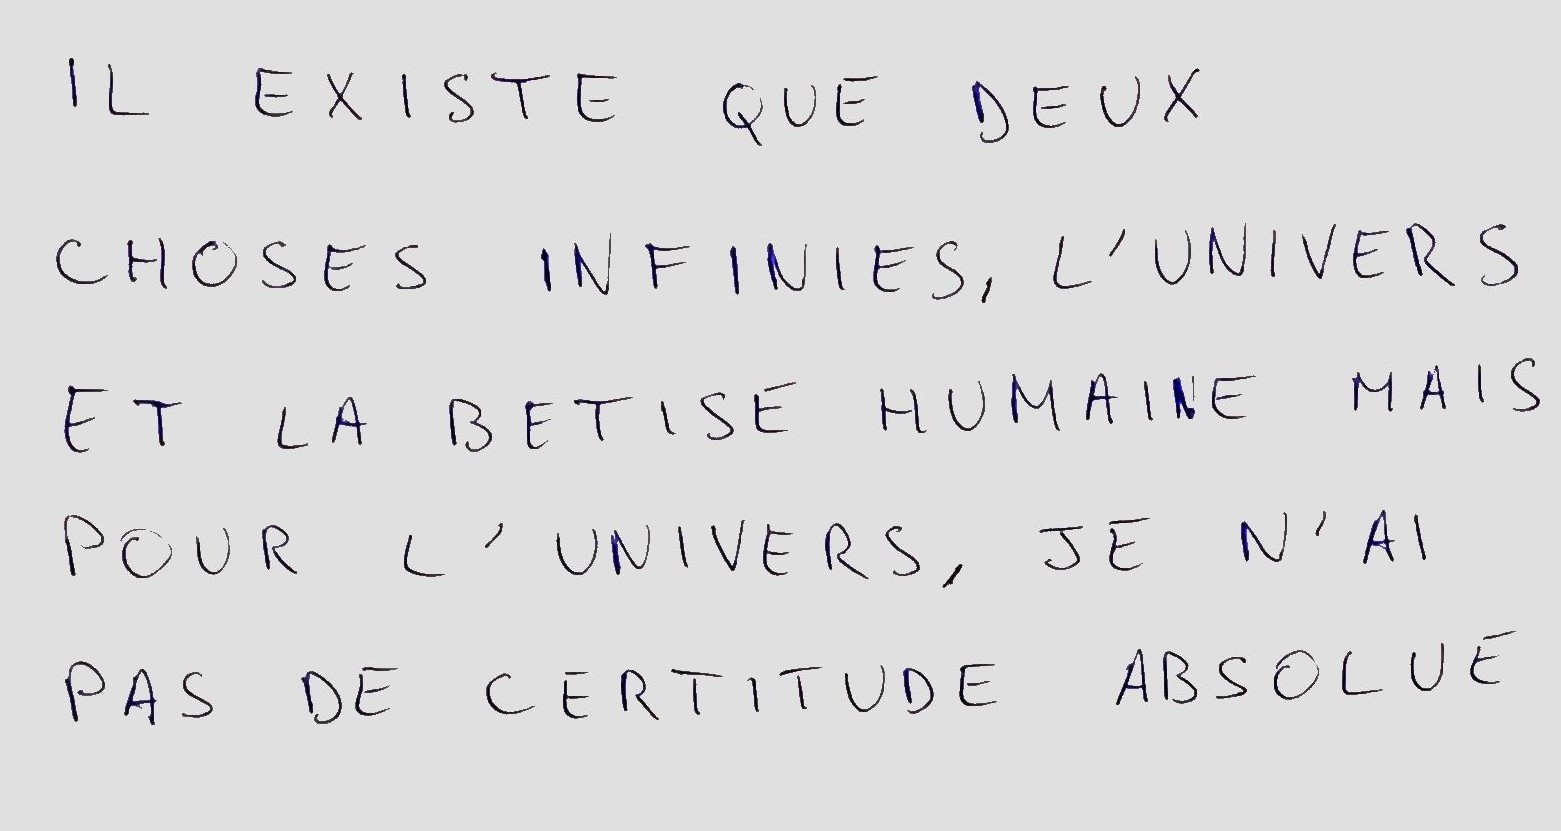 IL EXISTE QUE DEUX
CHOSES INFINIES, L'UNIVERS
ET LA BETISE HUMAINE MAIS
POUR L'UNIVERS, JE N'AI
PAS DE CERTITUDE ABSOLUE